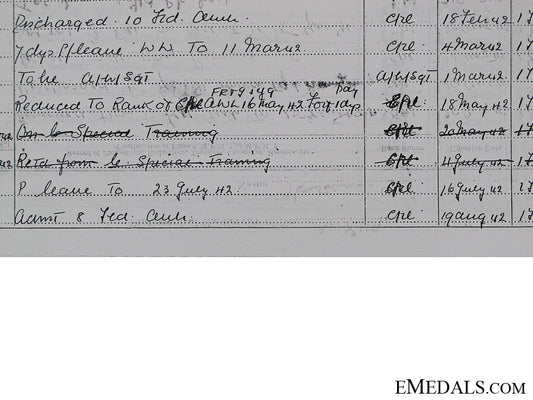 Discharged. 10 Fld. Amb. Cpl 18 Feb 42 17
7 dys P/leave WW To 11 Mar 42 Cpl 4 Mar 42 17
To be A/W/Sgt A/W/Sgt 1 Mar 42 17
Reduced To Rank of Cpl AWL 16 May 42 Forf 1 dys Pay Cpl 18 May 42 17
On Special Training Cpl 20 May 42 17
42 Retd from Special Training Cpl 4 July 42 17
P. leave To 23 July 42 Cpl 16 July 42 17
Admt 8 Fld. Amb. Cpl 19 Aug 42 17
EMEDALS.COM